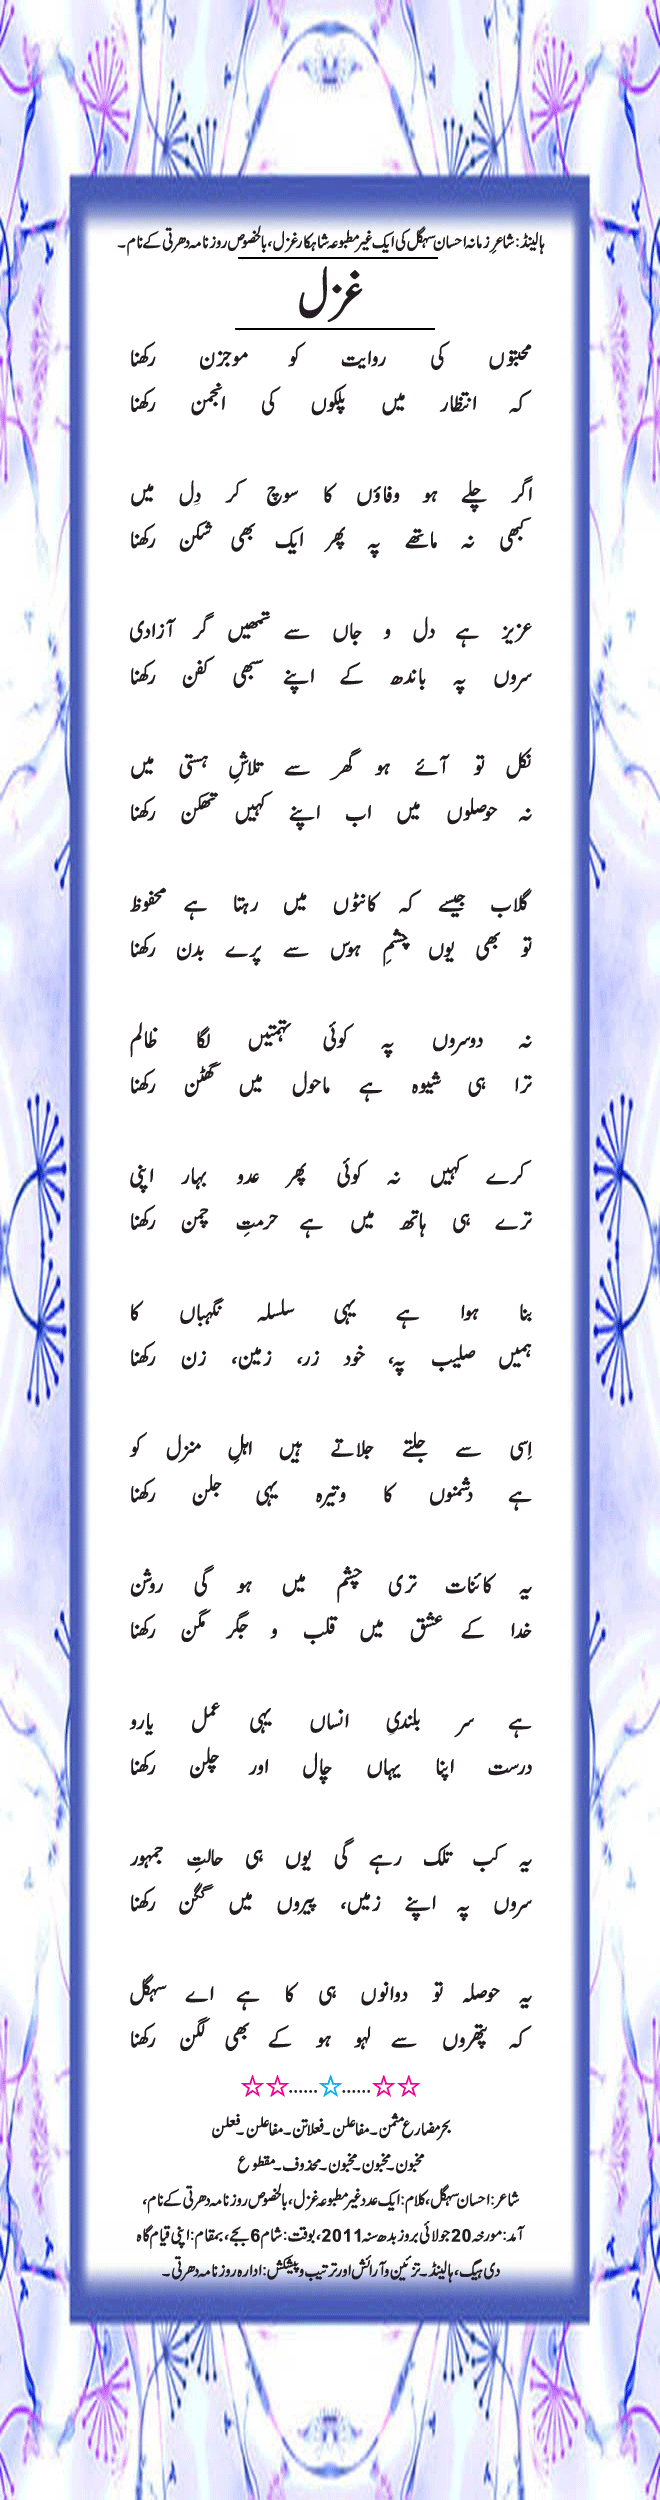 ہالینڈ: شاعرِ زمانہ احسان سہگل کی ایک غیر مطبوعہ شاہکار غزل، بالخصوص روزنامہ دھرتی کے نام۔
غزل
محبتوں کی روایت کو موجزن رکھنا
کہ انتظار میں پلکوں کی انجمن رکھنا
اگر چلے ہو وفاؤں کا سوچ کر دِل میں
کبھی نہ ماتھے پہ پھر ایک بھی شکن رکھنا
عزیز ہے دل و جاں سے تمھیں گر آزادی
سروں پہ باندھ کے اپنے سبھی کفن رکھنا
نکل تو آئے ہو گھر سے تلاشِ ہستی میں
نہ حوصلوں میں اب اپنے کہیں تھکن رکھنا
گلاب جیسے کہ کانٹوں میں رہتا ہے محفوظ
تو بھی یوں چشمِ ہوس سے پرے بدن رکھنا
نہ دوسروں پہ کوئی تہمتیں لگا ظالم
ترا ہی شیوہ ہے ماحول میں گھٹن رکھنا
کرے کہیں نہ کوئی پھر عدو بہار اپنی
ترے ہی ہاتھ میں ہے حرمتِ چمن رکھنا
بنا ہوا ہے یہی سلسلہ نگہباں کا
ہمیں صلیب پہ، خود زر، زمین، زن رکھنا
اِسی سے جلتے جلاتے ہیں اہلِ منزل کو
ہے دشمنوں کا وتیرہ یہی جلن رکھنا
یہ کائنات تری چشم میں ہو گی روشن
خدا کے عشق میں قلب و جگر مگن رکھنا
ہے سر بلندیِ انساں یہی عمل یارو
درست اپنا یہاں چال اور چلن رکھنا
یہ کب تلک رہے گی یوں ہی حالتِ جمہور
سروں پہ اپنے زمیں، پیروں میں گگن رکھنا
یہ حوصلہ تو دوانوں ہی کا ہے اے سہگل
کہ پتھروں سے لہو ہو کے بھی لگن رکھنا
بحر مضارع مثمن۔ مفاعلن۔ فعلاتن۔ مفاعلن۔ فعلن
مخبون۔ مخبون۔ مخبون۔ محذوف۔ مقطوع
شاعر: احسان سہگل، کلام: ایک عدد غیر مطبوعہ غزل، بالخصوص روزنامہ دھرتی کے نام،
آمد: مورخہ 20 جولائی بروز بدھ سنہ 2011، بوقت: شام 6 بجے، بمقام: اپنی قیام گاہ
دی ہیگ، ہالینڈ۔ تزئین و آرائش اور ترتیب و پیشکش: ادارہ روزنامہ دھرتی۔